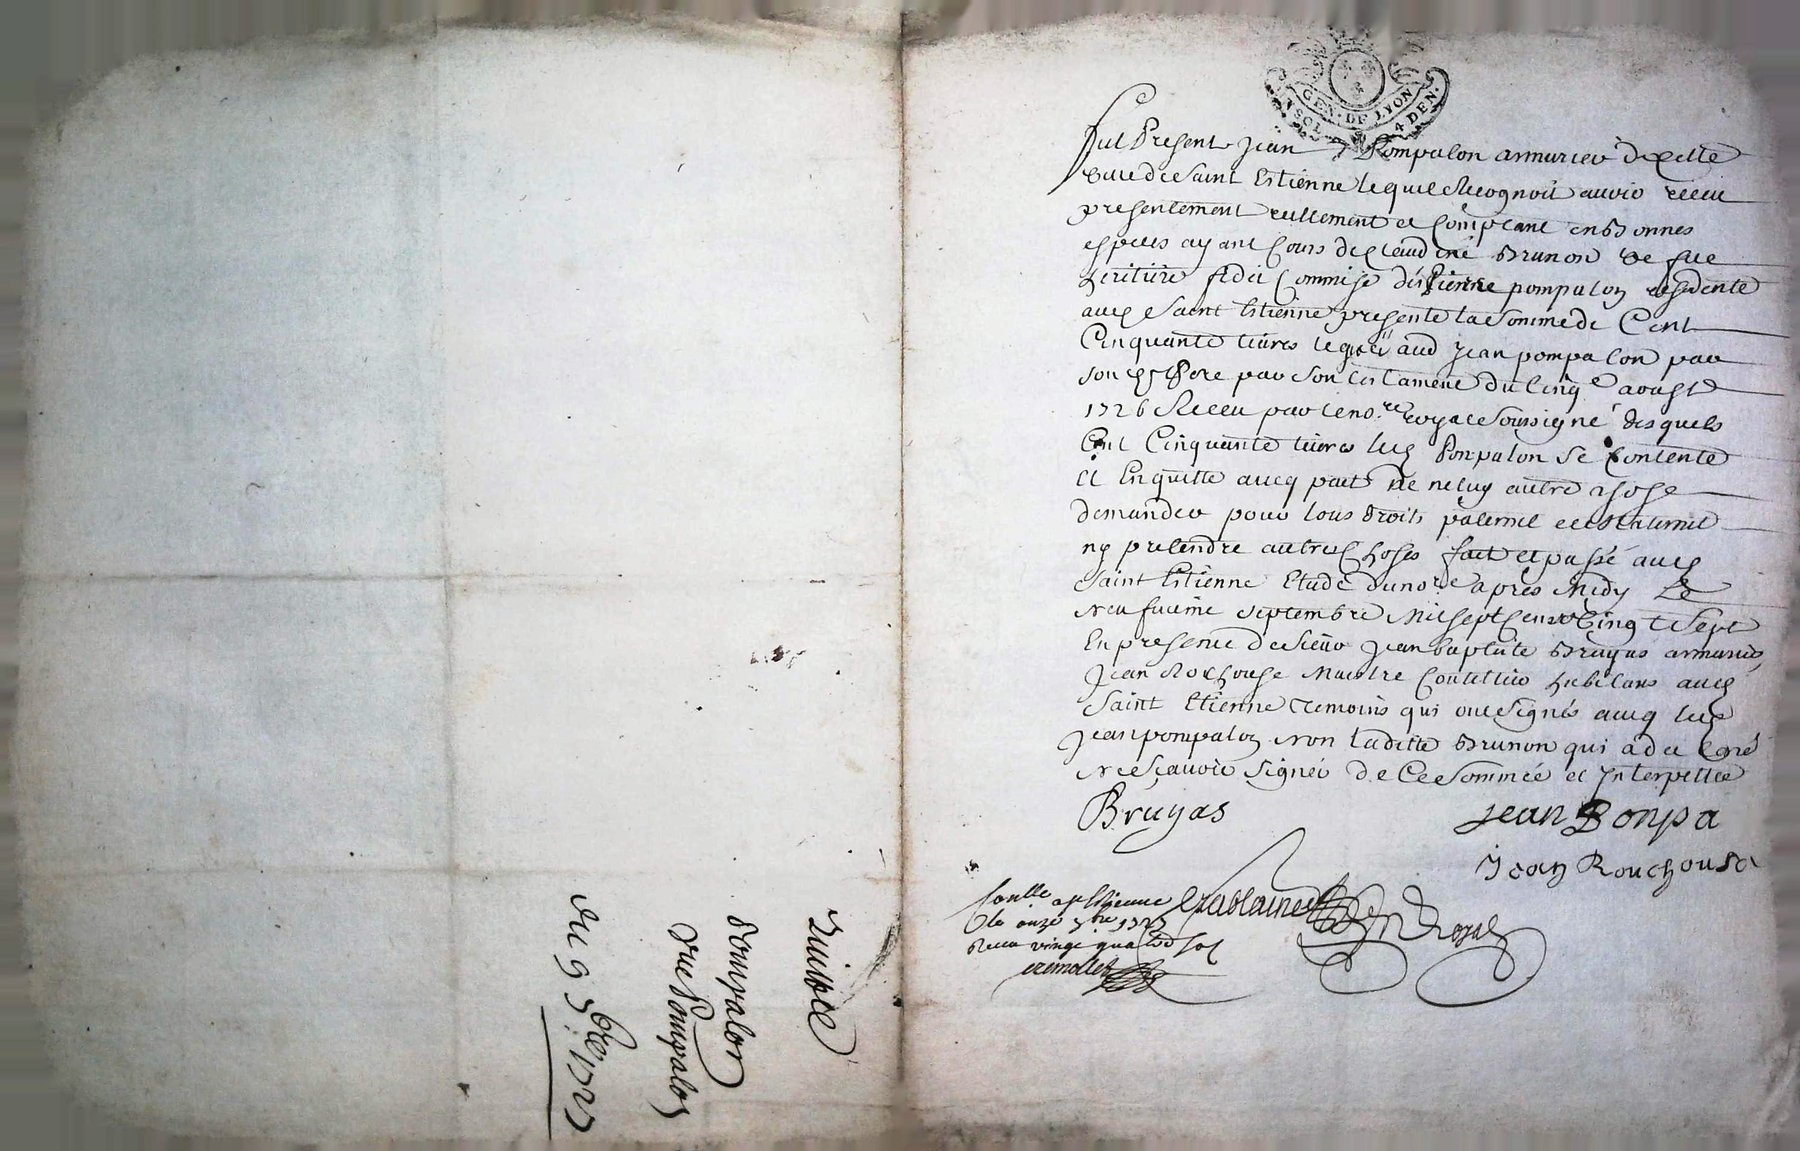 GEN. DE LYON
SOL 4 DEN.
fut Present Jean Pompalon armurier de cette
ville de Saint Estienne lequel Recognoit avoir receu
presentement reellement et Comptant en Bonnes
especes ayant Cours de Claudine Brunon Ve sue
heritiere fidei Commise d'Estienne pompalon residente
aud Saint Estienne presente la Somme de Cent
Cinquante livres legué aud Jean pompalon par
son pere par son testament du Cinq aoust
1726 Receu par le no.re royal Soussigné desquels
Cent Cinquante livres led Ponpalon se Contente
et En quitte aveq pact de ne luy autre chose
demander pour tous Droits paternel et Maternel
ny pretendre autres Choses fait et passé aud
Saint Estienne Etude dud no.re apres Midy Le
Neufvieme Septembre Mil sept Cent Vingt Sept
En presence de Sieur Jean baptiste Bruyas armurier
Jean Rochouse Maistre Coutellier habitans aud
Saint Etienne Temoins qui ont Signés aveq led
Jean pompalon Non laditte Brunon qui a declaré
Ne Sçavoir Signer de Ce Sommée et Interpellée
Bruyas
Jean Bonpa
Jean Rouchouse
Royal
Con.lle a st Etienne
le onze 7bre 1727
Receu vingt quatre sol
Quittce
pompalon
vue Pompalon
du 9 7bre 1727